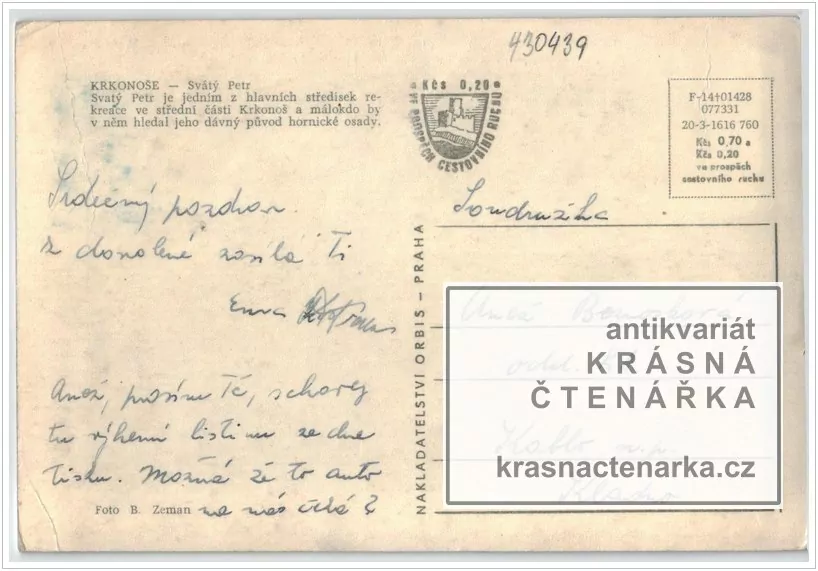 430439
KRKONOŠE — Svätý Petr
Svatý Petr je jedním z hlavních středisek re-
kreace ve střední části Krkonoš a málokdo by
v něm hledal jeho dávný původ hornické osady.
Kčs 0,20
VE PROSPĚCH CESTOVNÍHO RUCHU
F-14†01428
077331
20-3-1616 760
Kčs 0,70 a
Kčs 0,20
ve prospěch
cestovního ruchu
Srdečný pozdrav
z dovolené zasílá Ti
Anež, prosím Tě, schovej
tu výherní listinu ze dne
tisku. Možná že to auto
na nás čeká?
Foto B. Zeman
NAKLADATELSTVÍ ORBIS – PRAHA
Soudružka
Anež
Kablo n.p.
Kladno
antikvariát
KRÁSNÁ
ČTENÁŘKA
krasnactenarka.cz